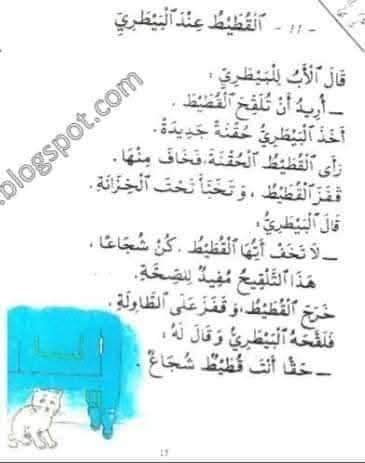 - 11 - اَلْقُطَيْطُ عِنْدَ اَلْبَيْطَرِيِّ
قَالَ اَلْأَبُ لِلْبَيْطَرِيِّ :
ـ أُرِيدُ أَنْ تُلَقِّحَ اَلْقُطَيْطَ .
أَخَذَ اَلْبَيْطَرِيُّ حُقْنَةً جَدِيدَةً.
رَأَى اَلْقُطَيْطُ اَلْحُقْنَةَ، فَخَافَ مِنْهَا.
قَفَزَ اَلْقُطَيْطُ ، وَتَخَبَّأَ تَحْتَ اَلْخِزَانَةِ.
قَالَ اَلْبَيْطَرِيُّ:
ـ لَا تَخَفْ أَيُّهَا اَلْقُطَيْطُ . كُنْ شُجَاعًا ،
هَذَا اَلتَّلْقِيحُ مُفِيدٌ لِلصِّحَّةِ.
خَرَجَ اَلْقُطَيْطُ، وَقَفَزَ عَلَى اَلطَّاوِلَةِ.
فَلَقَّحَهُ اَلْبَيْطَرِيُّ وَقَالَ لَهُ :
ـ حَقًّا أَنْتَ قُطَيْطٌ شُجَاعٌ
.blogspot.com